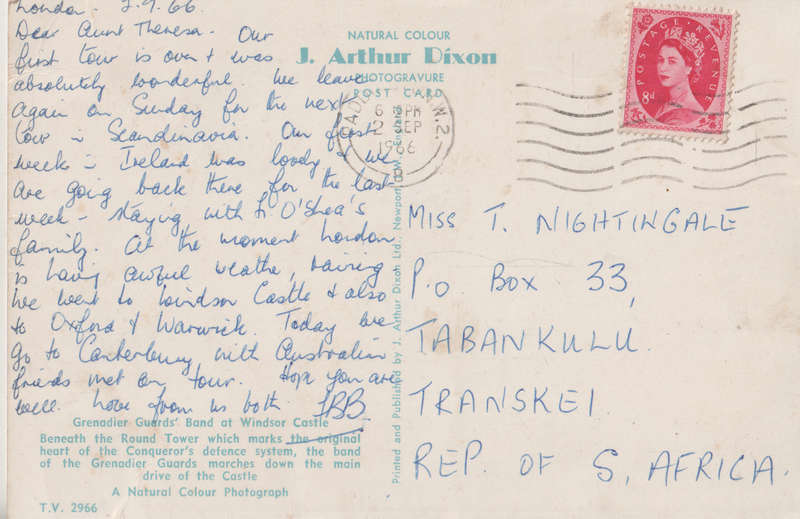 London. 2.9.66.
Dear Aunt Theresa. Our
first tour is over & was
absolutely wonderful. We leave
again on Sunday for the next
tour in Scandinavia. Our first
week in Ireland was lovely & we
are going back there for the last
week - staying with Fr O'Shea's
family. At the moment London
is having awful weather, raining
We went to Windsor Castle & also
to Oxford & Warwick. Today we
go to Canterbury with Australian
friends met on tour. Hope you are
well. Love from us both.
NATURAL COLOUR
J. Arthur Dixon
PHOTOGRAVURE
POST CARD
N.W.2.
6 PM
2 SEP
1966
POSTAGE REVENUE
8d
MISS T. NIGHTINGALE
P.O BOX 33,
TABANKULU.
TRANSKEI
REP. OF S. AFRICA.
Printed and Published by J. Arthur Dixon Ltd., Newport, I.W., England
Grenadier Guards' Band at Windsor Castle
Beneath the Round Tower which marks the original
heart of the Conqueror's defence system, the band
of the Grenadier Guards marches down the main
drive of the Castle
A Natural Colour Photograph
T.V. 2966